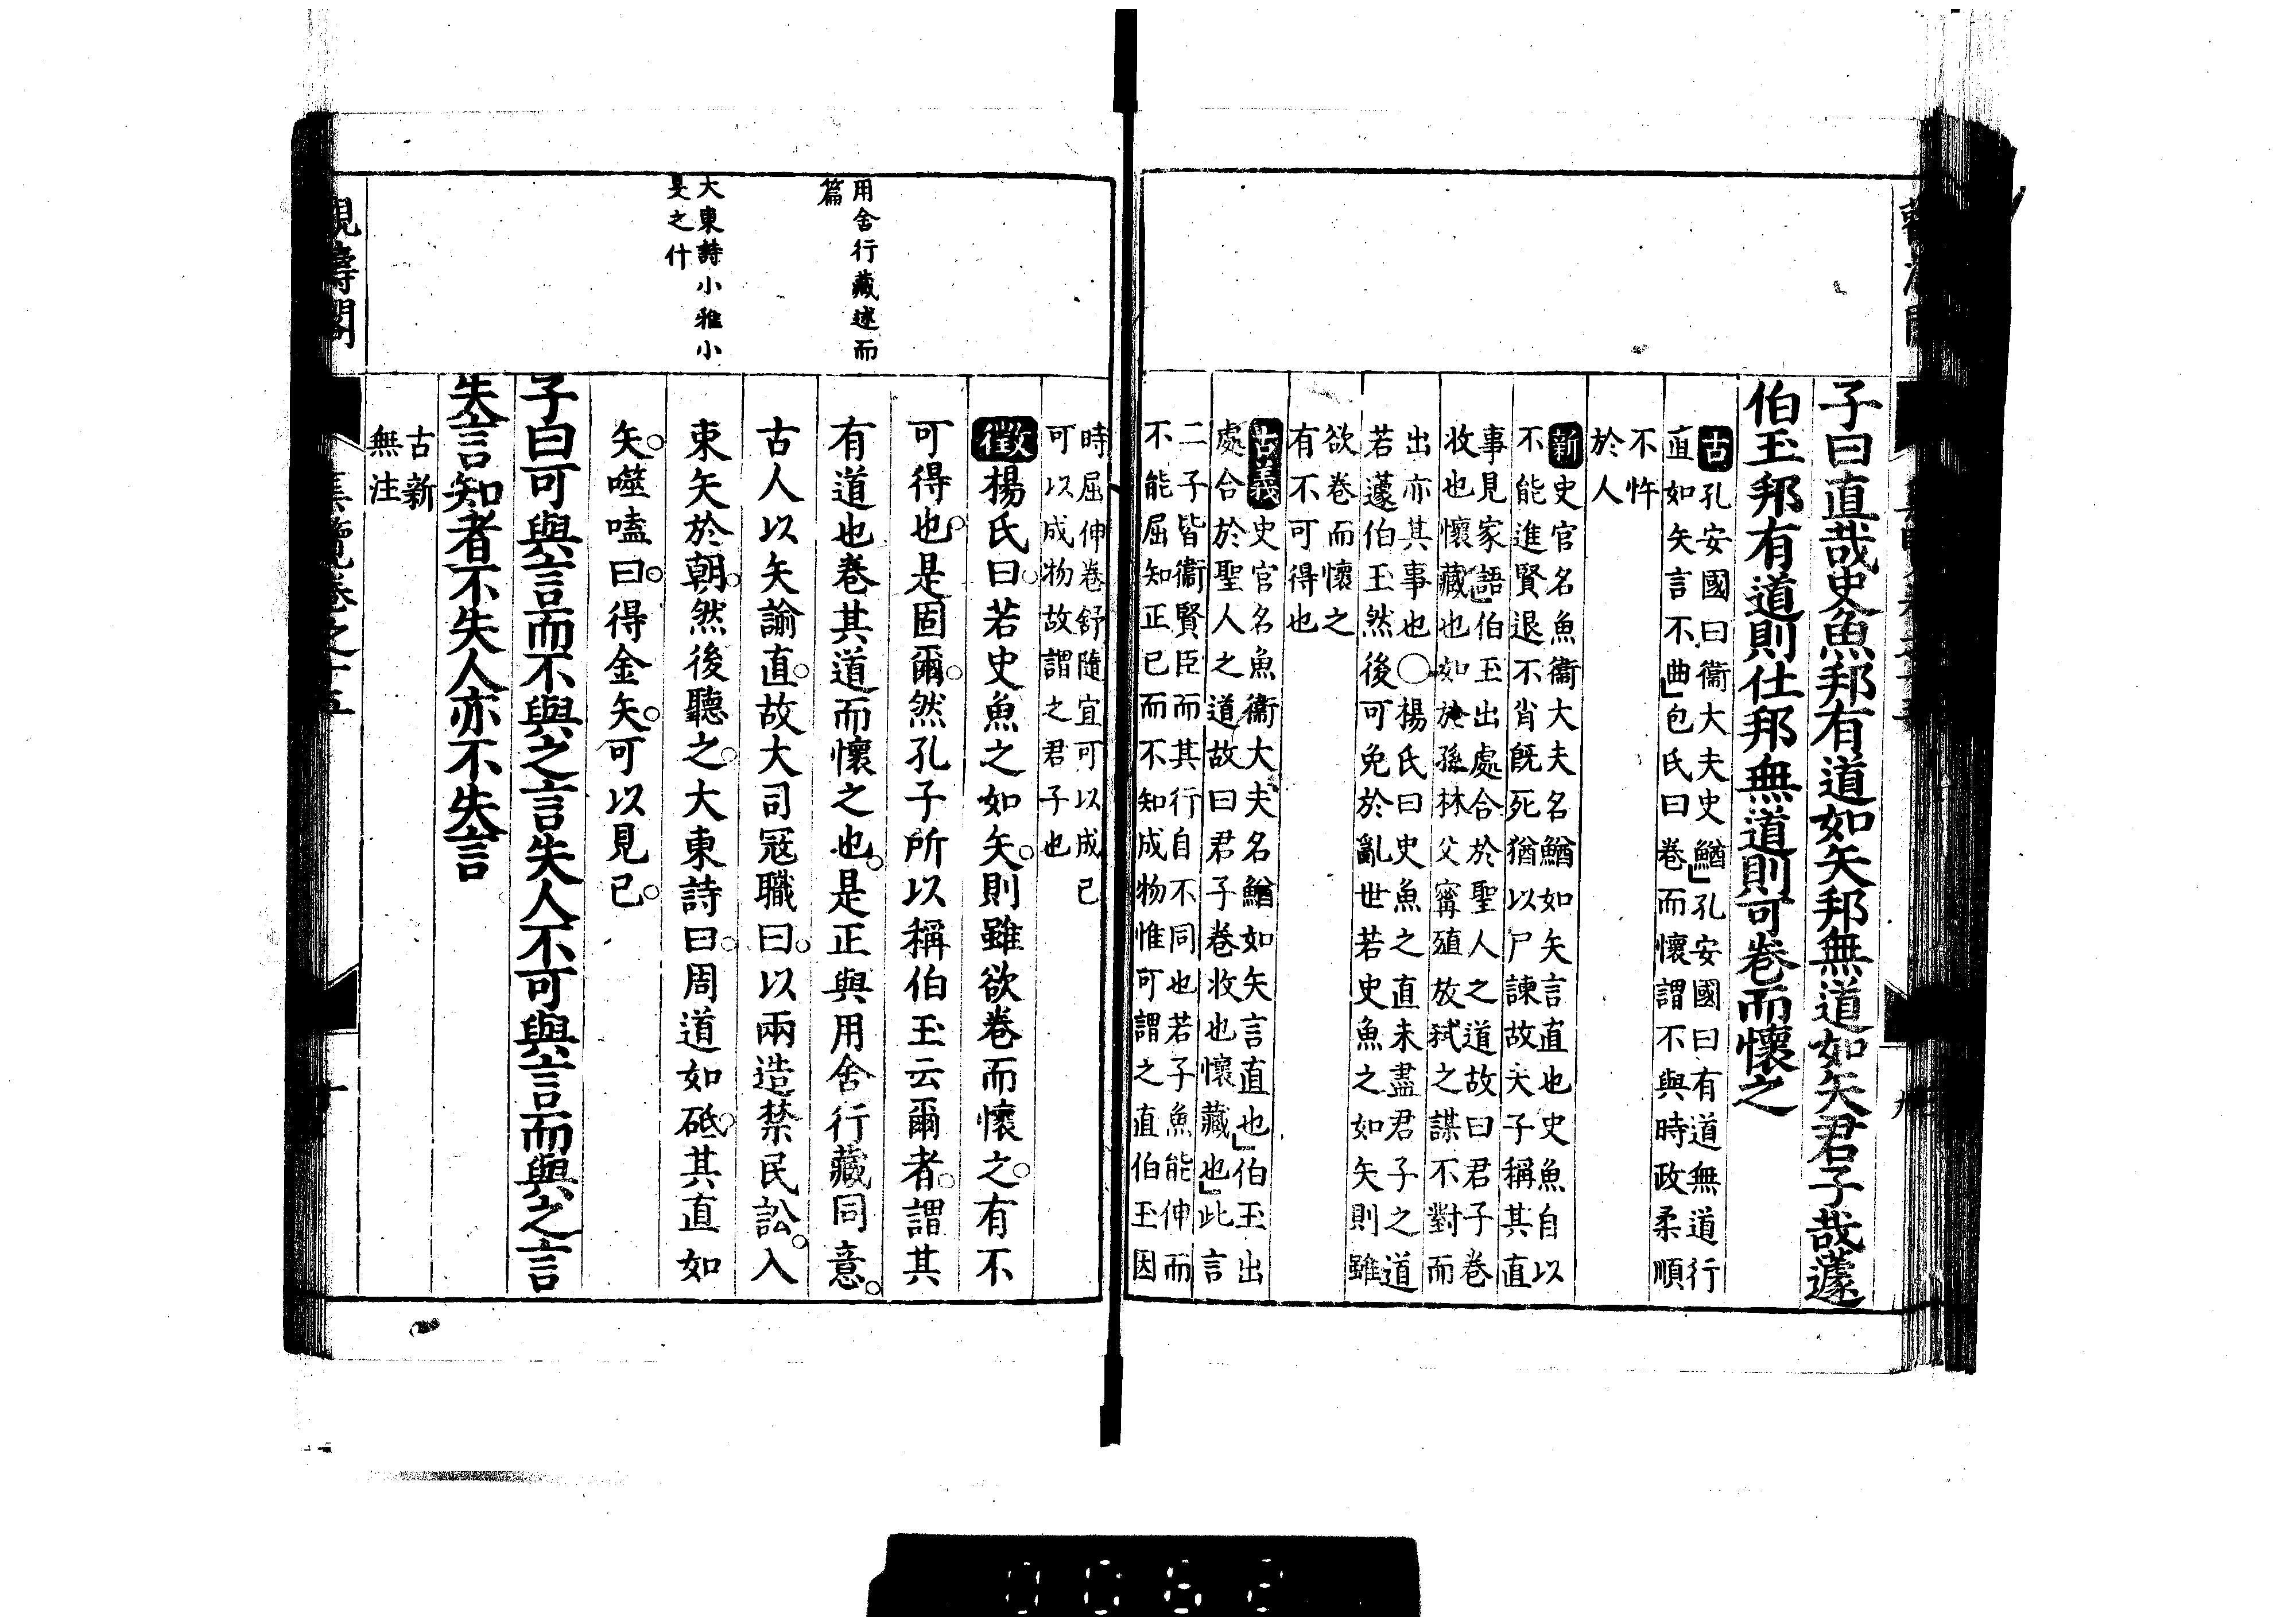 子曰直哉史魚邦有道如矢邦無道如矢君子哉蘧
伯玉邦有道則仕邦無道則可卷而懷之
古孔安國曰衞大夫史鰌孔安國曰有道無道行
直如矢言不曲包氏曰卷而懷謂不與時政柔順
不忤
於人
新史官名魚衞大夫名鰌如矢言直也史魚自以
不能進賢退不肖旣死猶以尸諫故夫子稱其直
事見家語伯玉出處合於聖人之道故曰君子卷
收也懷藏也如於孫林父甯殖放弑之謀不對而
出亦其事也○楊氏曰史魚之直未盡君子之道
若蘧伯玉然後可免於亂世若史魚之如矢則雖
欲卷而懷之
有不可得也
古義史官名魚衞大夫名鰌如矢言直也伯玉出
處合於聖人之道故曰君子卷收也懷藏也此言
二子皆衞賢臣而其行自不同也若子魚能伸而
不能屈知正已而不知成物惟可謂之直伯玉因
用舍行藏述而
篇
大東詩小雅小
旻之什
時屈伸卷舒隨宜可以成己
可以成物故謂之君子也
徵楊氏曰若史魚之如矢則雖欲卷而懷之有不
可得也是固爾然孔子所以稱伯玉云爾者謂其
有道也卷其道而懷之也是正與用舍行藏同意
古人以矢諭直故大司冦職曰以兩造禁民訟入
束矢於朝然後聽之大東詩曰周道如砥其直如
矢噬嗑曰得金矢可以見已
子曰可與言而不與之言失人不可與言而與之言
失言知者不失人亦不失言
古新
無注
觀濤閣
集覽卷之十五
十
0062